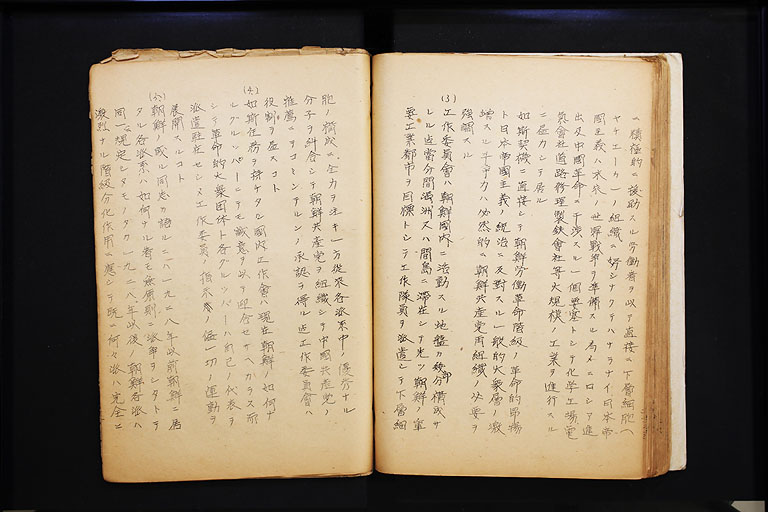 ニ積極的ニ援助スル労働者ヲ以テ直接ニ下層細胞ヘ
ヤチエーカーノ組織ニ努シナクテハナラナイ日本帝
国主義ハ未来ノ世界戦争ヲ準備スル為メニロシア進
出及中国革命ニ干渉スル一個要塞トシテ化学工場電
気会社道路修理製鉄会社等大規模ノ工業ヲ進行スル
ニ益カシテ居ル
如斯契機ニ直接シテ朝鮮労働革命階級ノ革命的昂揚
ト日本帝国主義ノ統治ニ反対スル一般的大衆層ノ激
増スル斗争力ハ必然的ニ朝鮮共産党再組織ノ必要ヲ
強調スル
(3)工作委員会ハ朝鮮国内ニ活動スル地盤カ幾分構成サ
レル迄当分間満洲又ハ間島ニ滞在シテ先ツ朝鮮ノ軍
要工業都市ヲ目標トシテ工作隊員ヲ派遣シテ下層細
胞ノ構成ニ全力ヲ注キ一方従来各派系中ノ優秀ナル
分子ヲ糾合シテ朝鮮共産党ヲ組織シテ中国共産党ノ
推薦ニテコミンテルンノ承認ヲ得ル迄工作委員会ハ
役割ヲ尽スコト
(4)如斯任務ヲ持チタル国内工作会ハ現在朝鮮ノ如何ナ
ルグルッパーニテモ誠意ヲ以テ迎合セサヘカラス而
シテ革命的大衆団体ト各グルッパーハ自己ノ代表ヲ
派遣駐在セシメ工作委員ノ指示参ノ値一切ノ運動ヲ
展開スルコト
(5)朝鮮ノ或ル同志カ語ルニハ一九二八年以前朝鮮ニ居
タル各派系ハ如何ナル者モ無原則ニ派争ヲシタトテ
同一ニ規定シタモノタカ一九二八年以後ノ朝鮮各派ハ
激烈ナル階級分化作用ニ応シテ既ニ何々派ハ完全ニ